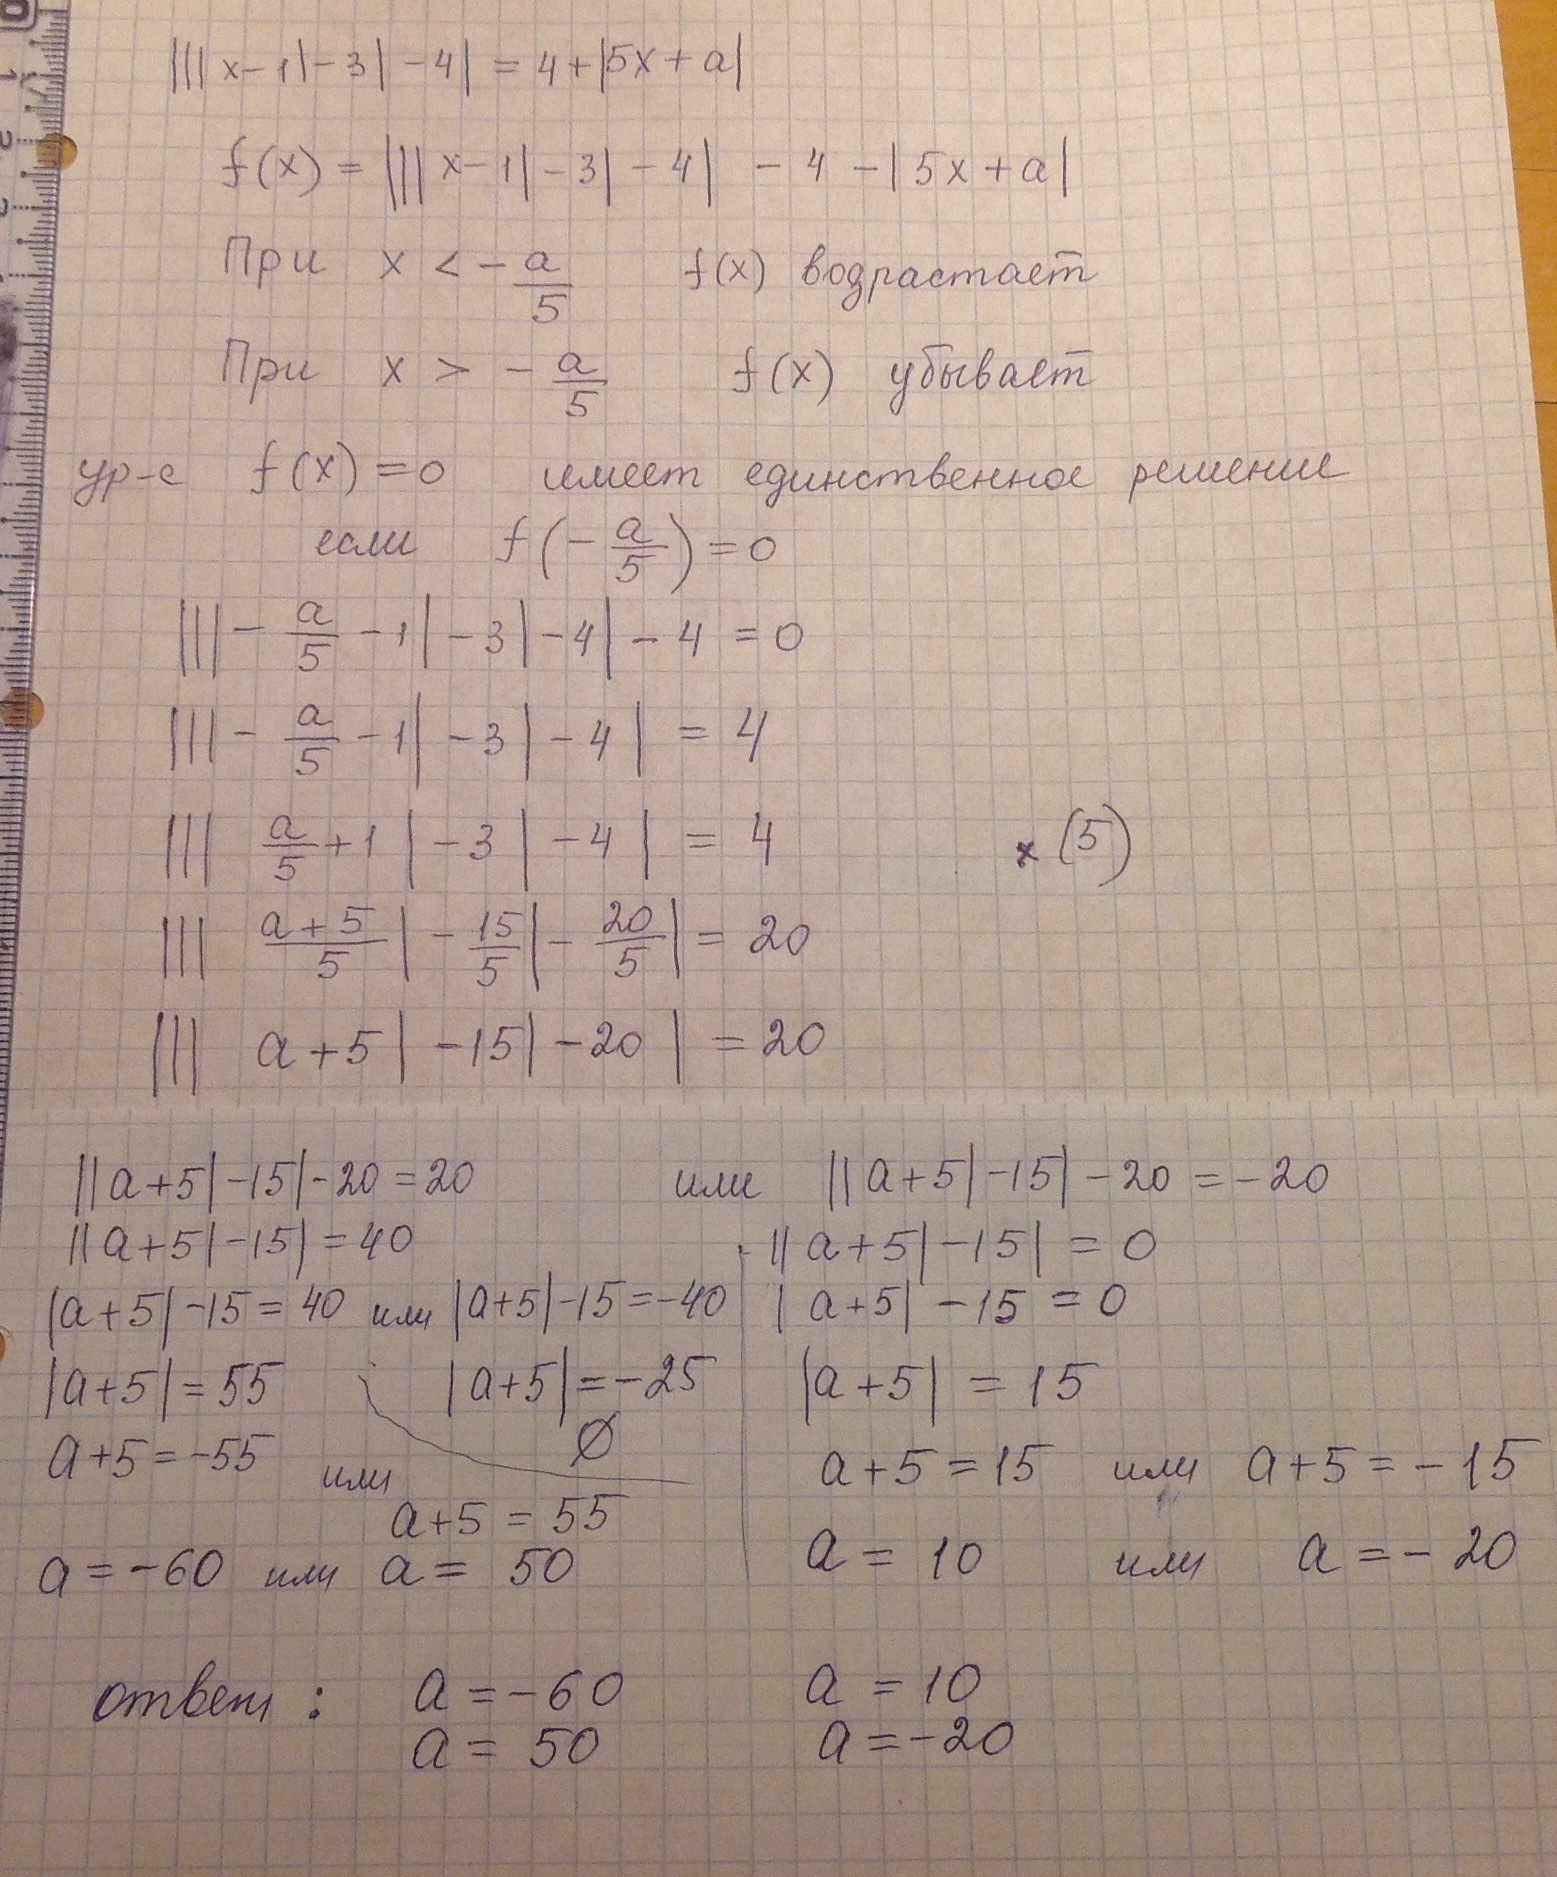 |||x-1|-3|-4| = 4+|5x+a|
f(x) = ||||x-1|-3|-4| -4 -|5x+a|
При x < -a/5 f(x) водрастает
При x > -a/5 f(x) убывает
ур-е f(x)=0 имеет единственное решение
если f(-a/5)=0
|||-a/5-1|-3|-4|-4=0
|||-a/5-1|-3|-4|=4
|||a/5+1|-3|-4|=4 x(5)
|||(a+5)/5|-15/5|-20/5|=20
|||a+5|-15|-20|=20
||a+5|-15|-20=20 или ||a+5|-15|-20=-20
||a+5|-15|=40 ||a+5|-15|=0
|a+5|-15=40 или |a+5|-15=-40 |a+5|-15=0
|a+5|=55 |a+5|=-25 |a+5|=15
∅
a+5=-55 или a+5=55 a+5=15 или a+5=-15
a=-60 или a=50 a=10 или a=-20
ответ: a=-60 a=10
a=50 a=-20
0
1
2
3